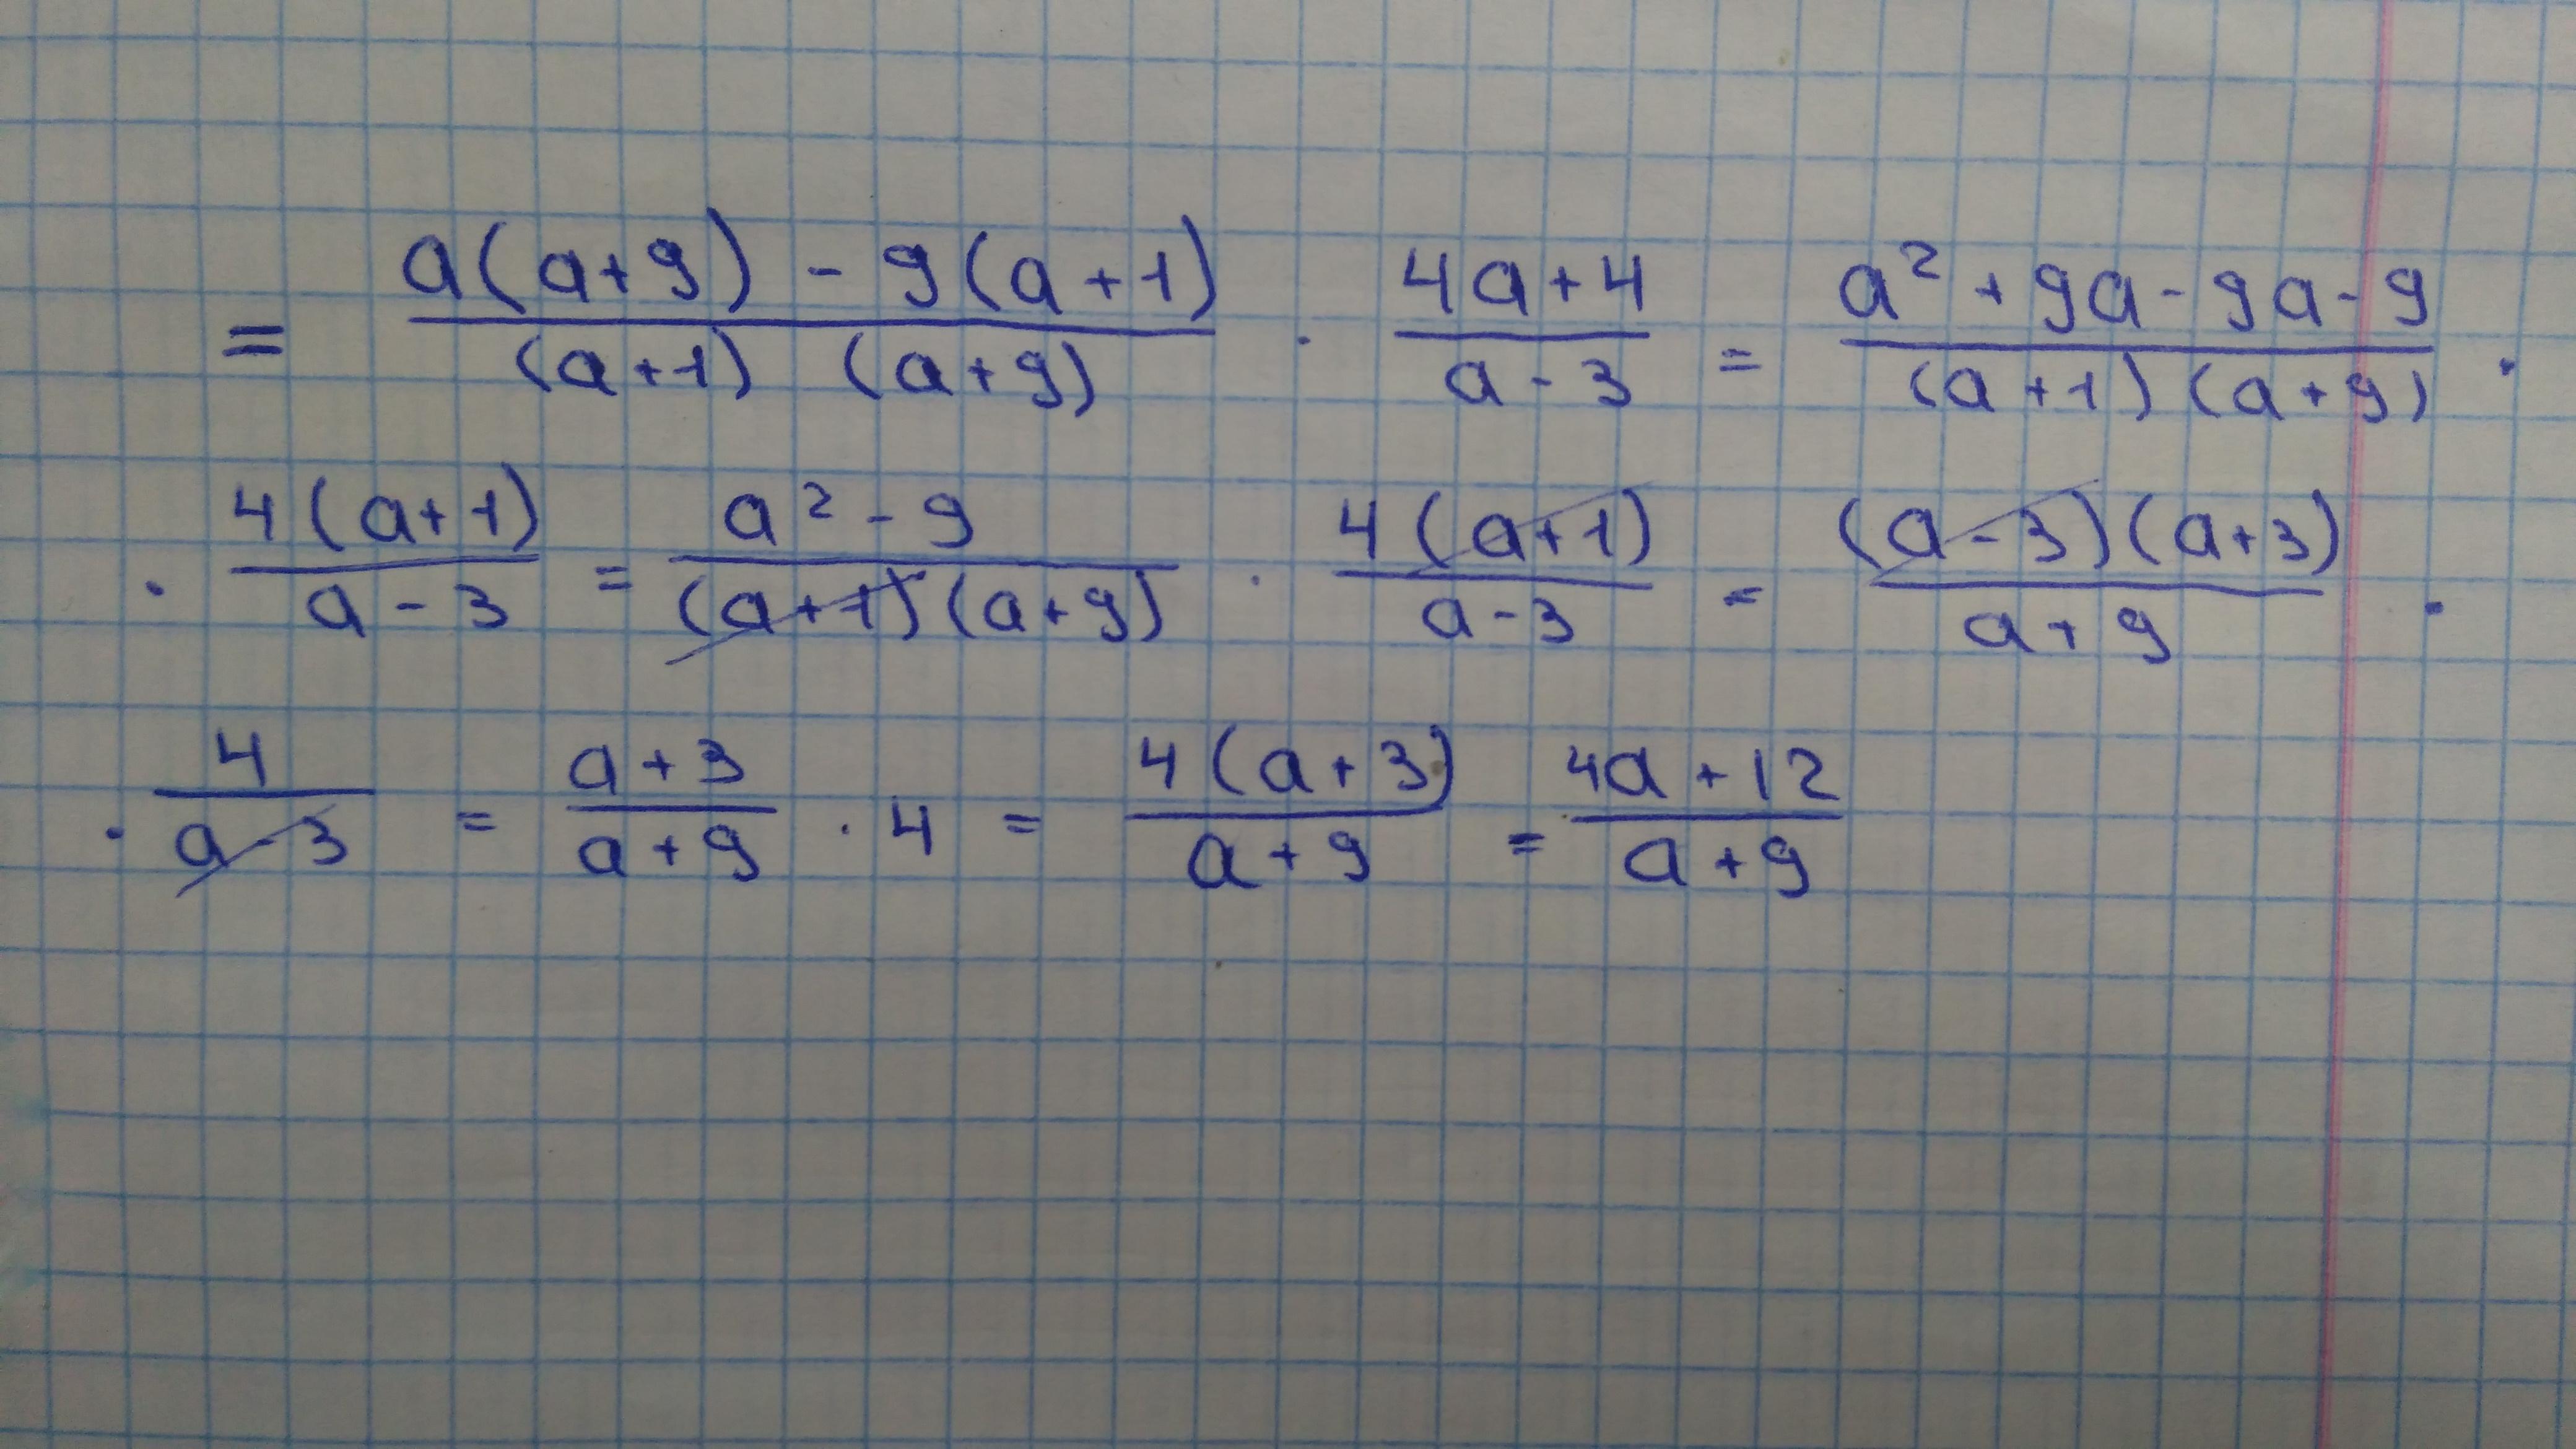 = a(a+9) - 9(a+1) / (a+1) (a+9) · 4a+4 / a-3 = a² + 9a - 9a - 9 / (a+1)(a+9) ·
· 4(a+1) / a-3 = a² - 9 / (a+1)(a+9) · 4(a+1) / a-3 = (a-3)(a+3) / a+9 ·
· 4 / a-3 = a+3 / a+9 · 4 = 4(a+3) / a+9 = 4a+12 / a+9